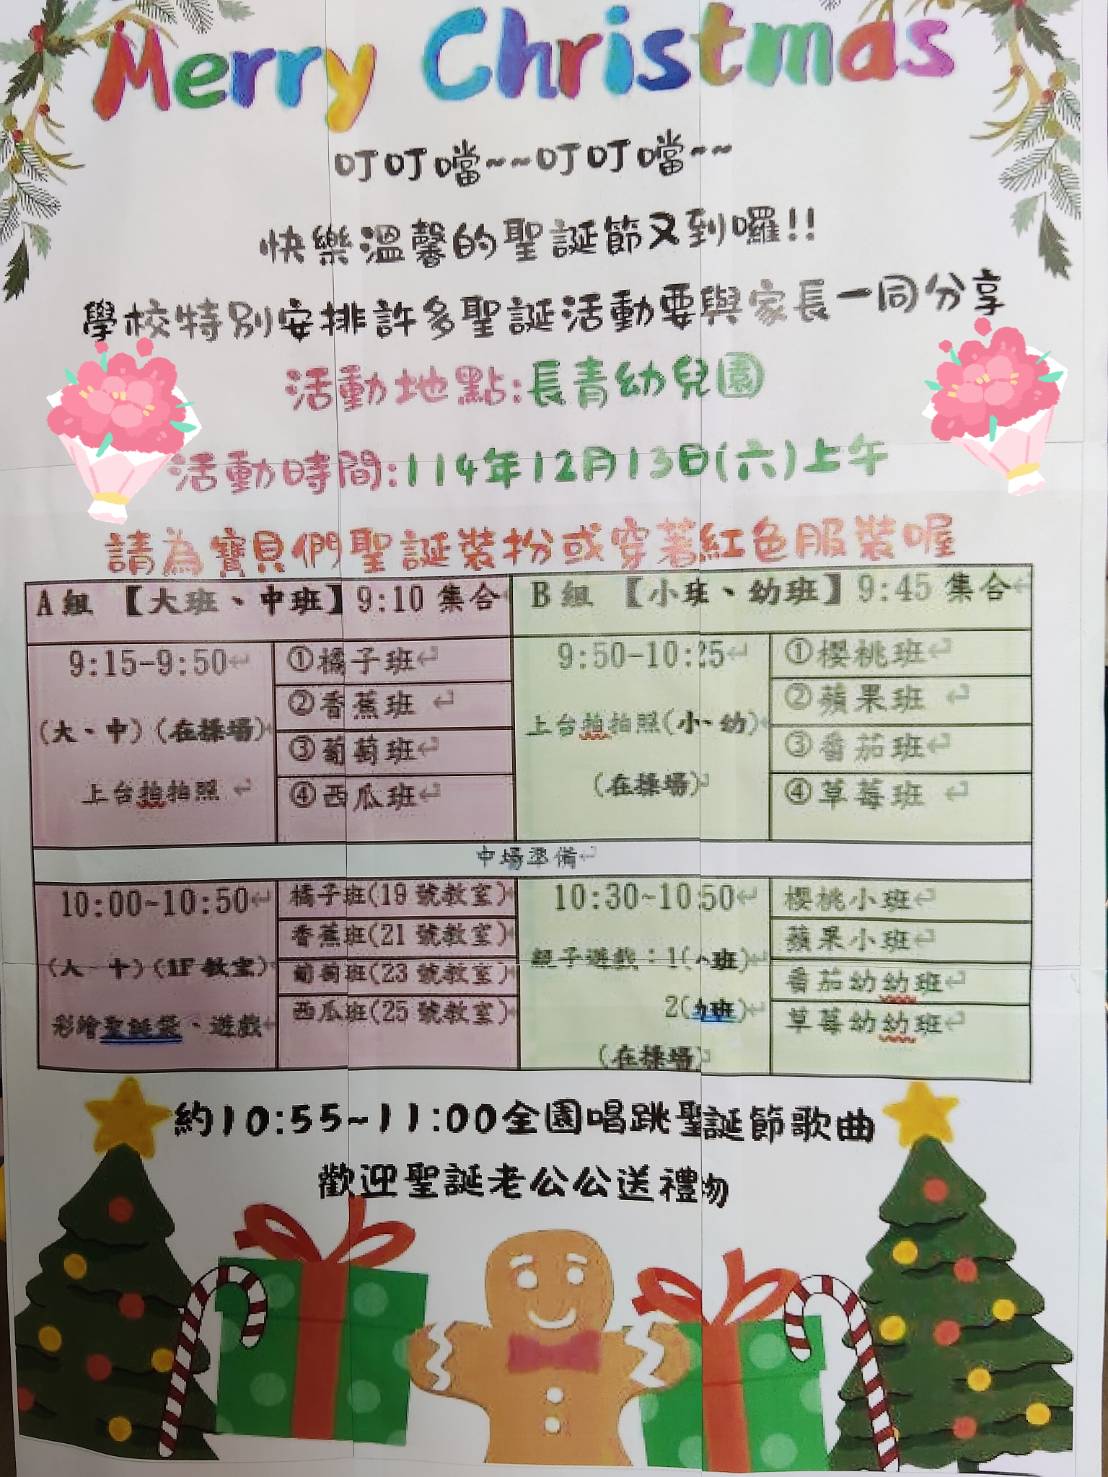 Merry Christmas
叮叮噹~~叮叮噹~~
快樂溫馨的聖誕節又到囉!!
學校特別安排許多聖誕活動要與家長一同分享
活動地點:長青幼兒園
活動時間:114年12月13日(六)上午
請為寶貝們聖誕裝扮或穿著紅色服裝喔
A組 【大班、中班】9:10 集合
B組 【小班、幼班】9:45 集合
9:15-9:50
(大、中) (在操場)
上台拍拍照
①橘子班
②香蕉班
③葡萄班
④西瓜班
9:50-10:25
上台拍拍照(小、幼)
(在操場)
①櫻桃班
②蘋果班
③番茄班
④草莓班
中場準備
10:00~10:50
(1F 教室)
彩繪聖誕袋、遊戲
橘子班(19 號教室)
香蕉班(21 號教室)
葡萄班(23 號教室)
西瓜班(25 號教室)
10:30~10:50
親子遊戲：1(小班)
2(幼班)
(在操場)
櫻桃小班
蘋果小班
番茄幼幼班
草莓幼幼班
約10:55~11:00全園唱跳聖誕節歌曲
歡迎聖誕老公公送禮物